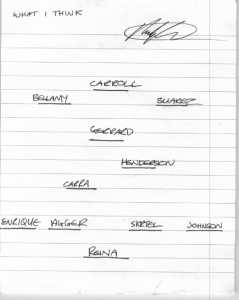 WHAT I THINK
CARROLL
BELLAMY SUAREZ
GERRARD
HENDERSON
CARRA
ENRIQUE AGGER SKRTEL JOHNSON
REINA